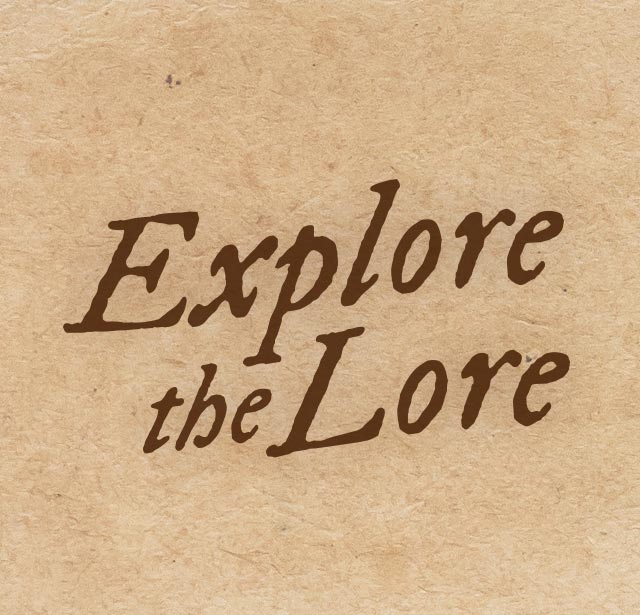 Explore
the Lore